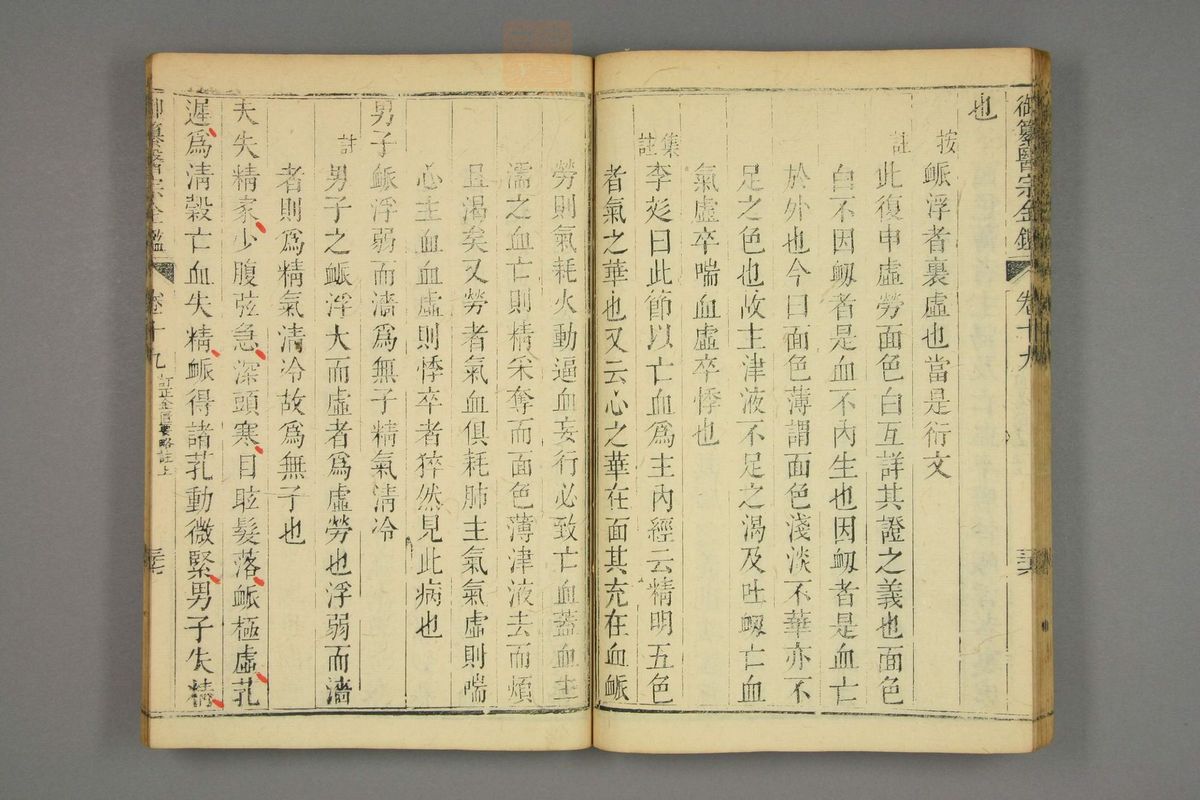 御纂醫宗金鑑 卷十九
也
按 衇浮者裏虛也當是衍文
註 此復申虛勞面色白互詳其證之義也面色
白不因衂者是血不內生也因衂者是血亡
於外也今曰面色薄謂面色淺淡不華亦不
足之色也故主津液不足之渴及吐衂亡血
氣虛卒喘血虛卒悸也
集註 李彣曰此節以亡血爲主內經云精明五色
者氣之華也又云心之華在面其充在血衇
勞則氣耗火動逼血妄行必致亡血蓋血主
濡之血亡則精采奪而面色薄津液去而煩
且渴矣又勞者氣血俱耗肺主氣氣虛則喘
心主血血虛則悸卒者猝然見此病也
男子衇浮弱而濇爲無子精氣淸冷
註 男子之衇浮大而虛者爲虛勞也浮弱而濇
者則爲精氣清冷故爲無子也
夫失精家少腹弦急深頭寒目眩髮落衇極虛芤
遲爲淸穀亡血失精衇得諸芤動微緊男子失精
御纂醫宗金鑑 卷十九 訂正金匱要略註上